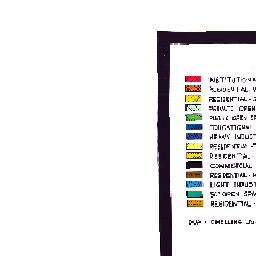 INSTITUTIONA
RESIDENTIAL
RESIDENTIAL-
PRIVATE OPEN
PUBLIC OPEN SP
EDUCATIONAL
HEAVY INDUST
RESIDENTIAL-
RESIDENTIAL-
COMMERCIAL
RESIDENTIAL-
LIGHT INDUST
OPEN SPA
RESIDENTIAL-
DWELLING